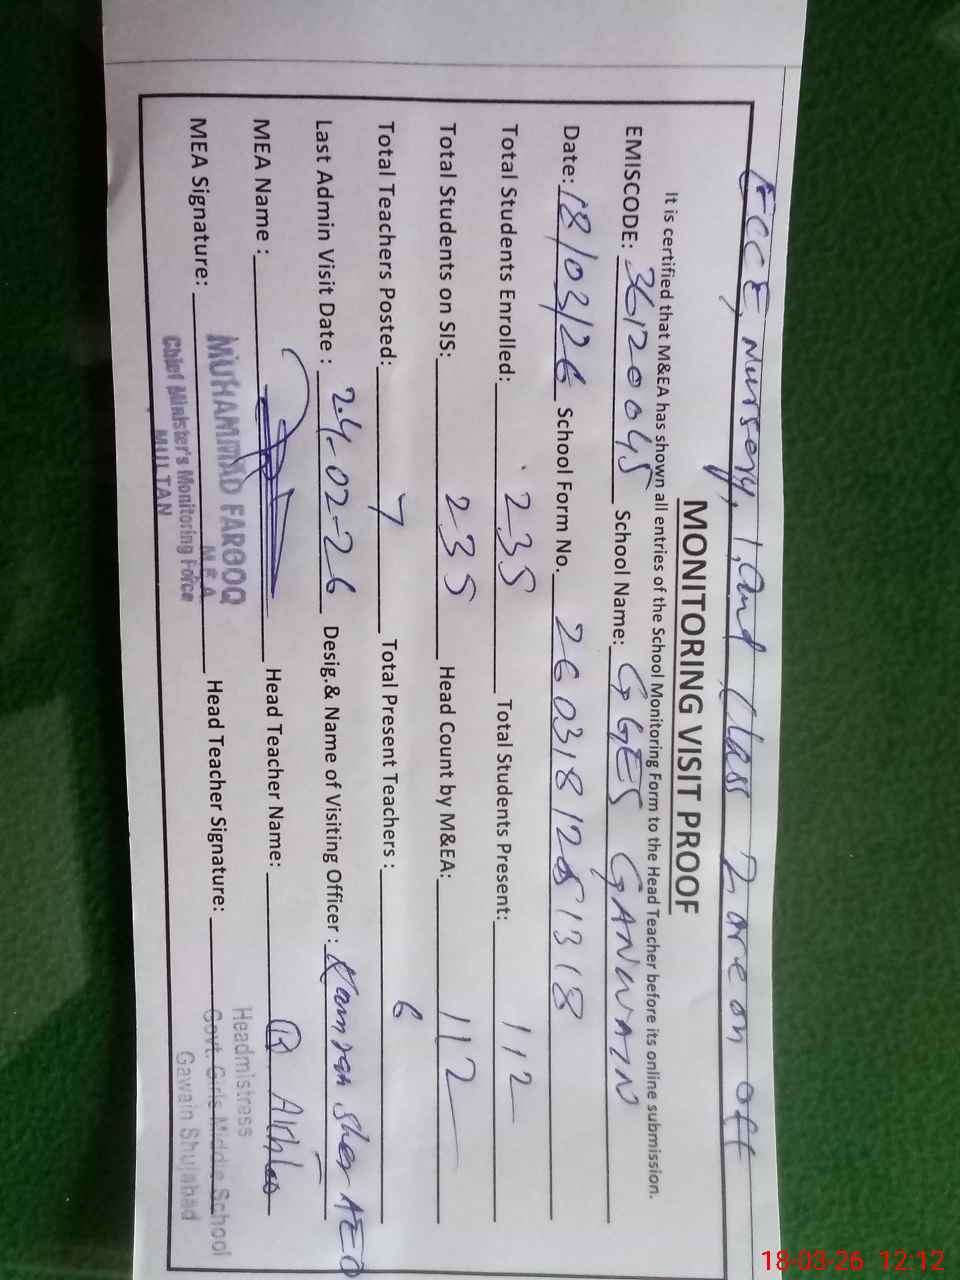 ECCE, Nursery, 1, and Class 2 are on off
MONITORING VISIT PROOF
It is certified that M&EA has shown all entries of the School Monitoring Form to the Head Teacher before its online submission.
EMISCODE: 36120045 School Name: GGES GANWAIN
Date: 18/03/26 School Form No.
Total Students Enrolled: 235 Total Students Present: 112
Total Students on SIS: 235 Head Count by M&EA: 112
Total Teachers Posted: 7 Total Present Teachers : 6
Last Admin Visit Date : 24-02-26 Desig.& Name of Visiting Officer : Kamran Sher AEO
MEA Name : Head Teacher Name:
MEA Signature: Head Teacher Signature:
MUHAMMAD FAROOQ
M E A
Chief Minister's Monitoring Force
MULTAN
Headmistress
Govt. Girls Middle School
Gawain Shujabad
18-03-26 12:12